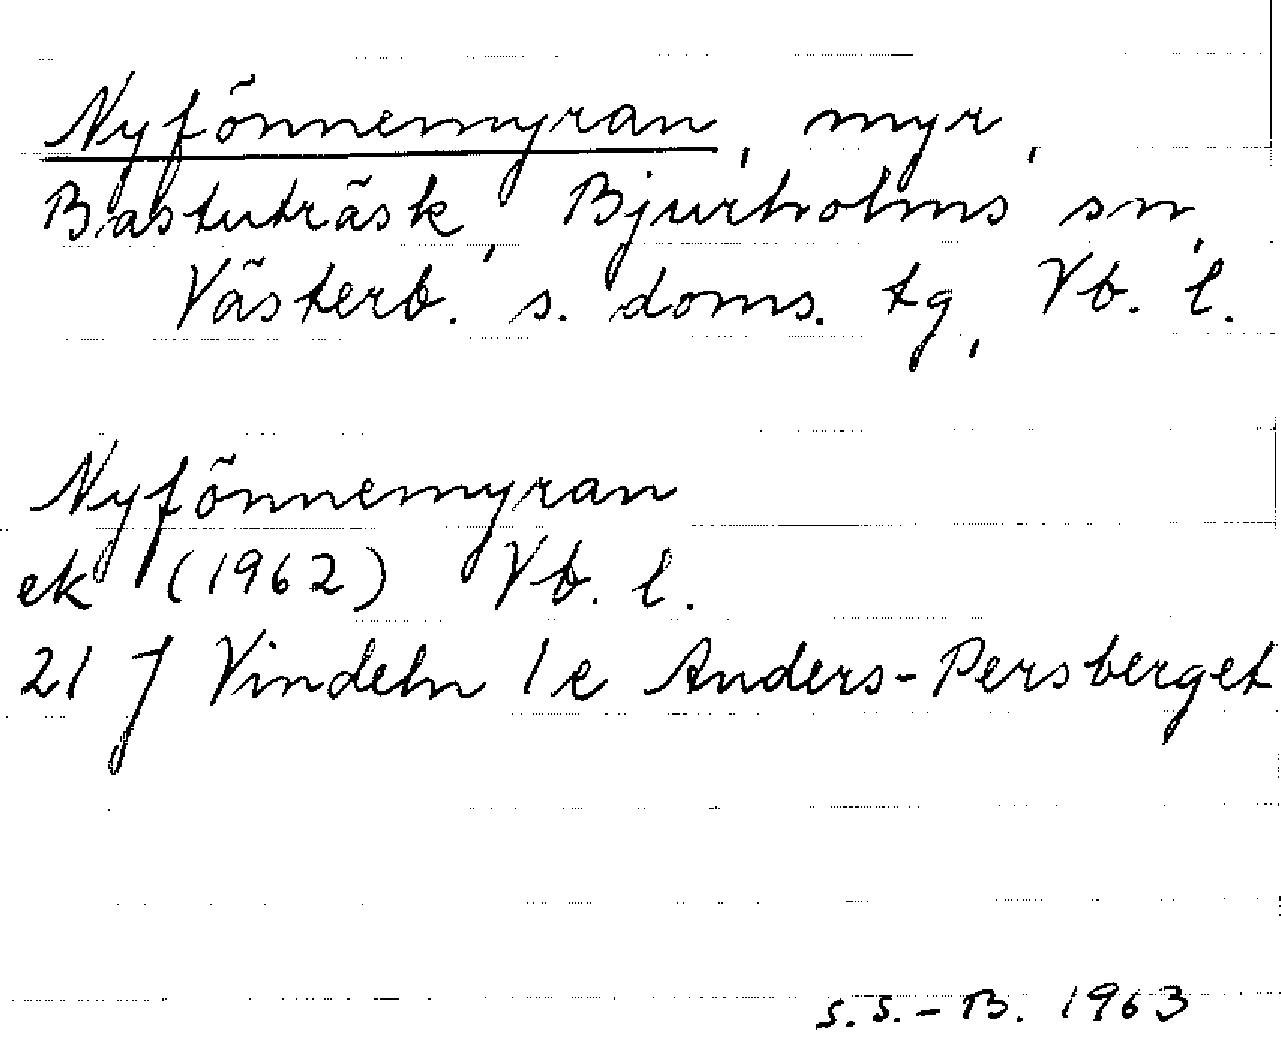 Nyfönnemyran, myr,
Bastuträsk, Bjurholms sn,
Västerb. s. doms. tg, Vb. l.
Nyfönnemyran
ek (1962) Vb. l.
21 J Vindeln 1e Anders-Persberget
S.S.-B. 1963